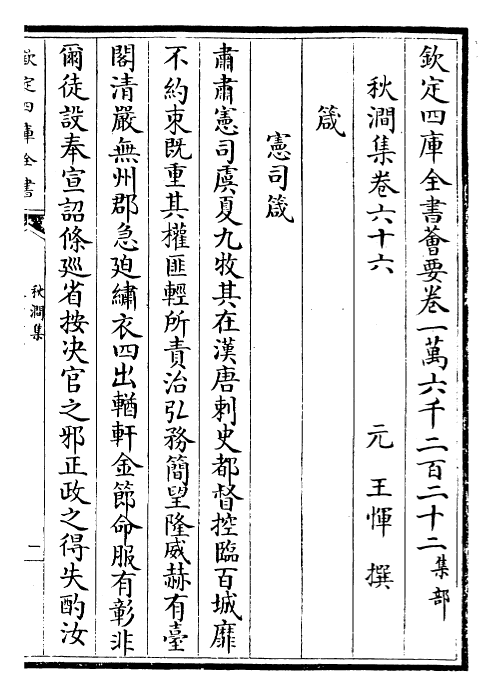 欽定四庫全書薈要卷一萬六千二百二十二集部
秋澗集卷六十六 元 王惲 撰
箴
憲司箴
肅肅憲司虞夏九牧其在漢唐刺史都督控臨百城靡
不約束既重其權匪輕所責治弘務簡望隆威赫有臺
閣清嚴無州郡急廹繡衣四出輶軒金節命服有彰非
爾徒設奉宣詔條廵省按决官之邪正政之得失酌汝
欽定四庫全書
秋澗集